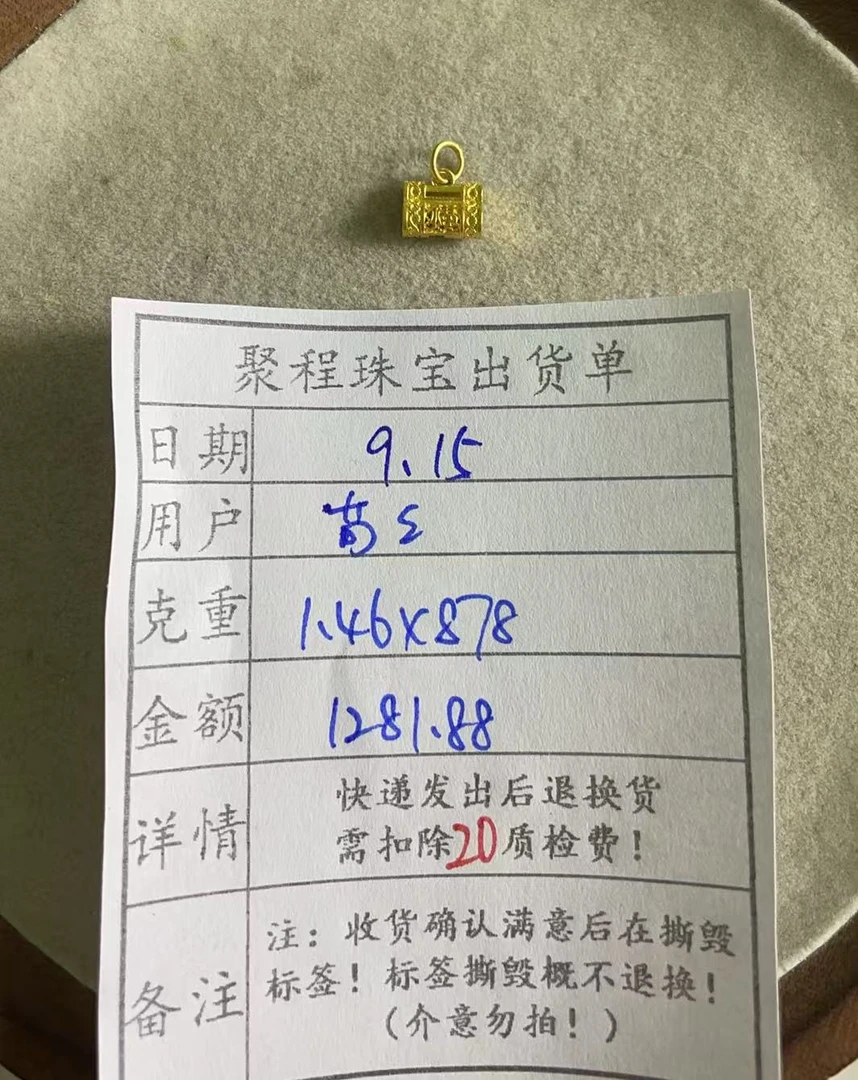 聚程珠宝出货单
日期 9.15
用户
克重 1.46×878
金额 1281.88
详情 快递发出后退换货
需扣除20质检费！
备注 注：收货确认满意后在撕毁
标签！标签撕毁概不退换！
（介意勿拍！）